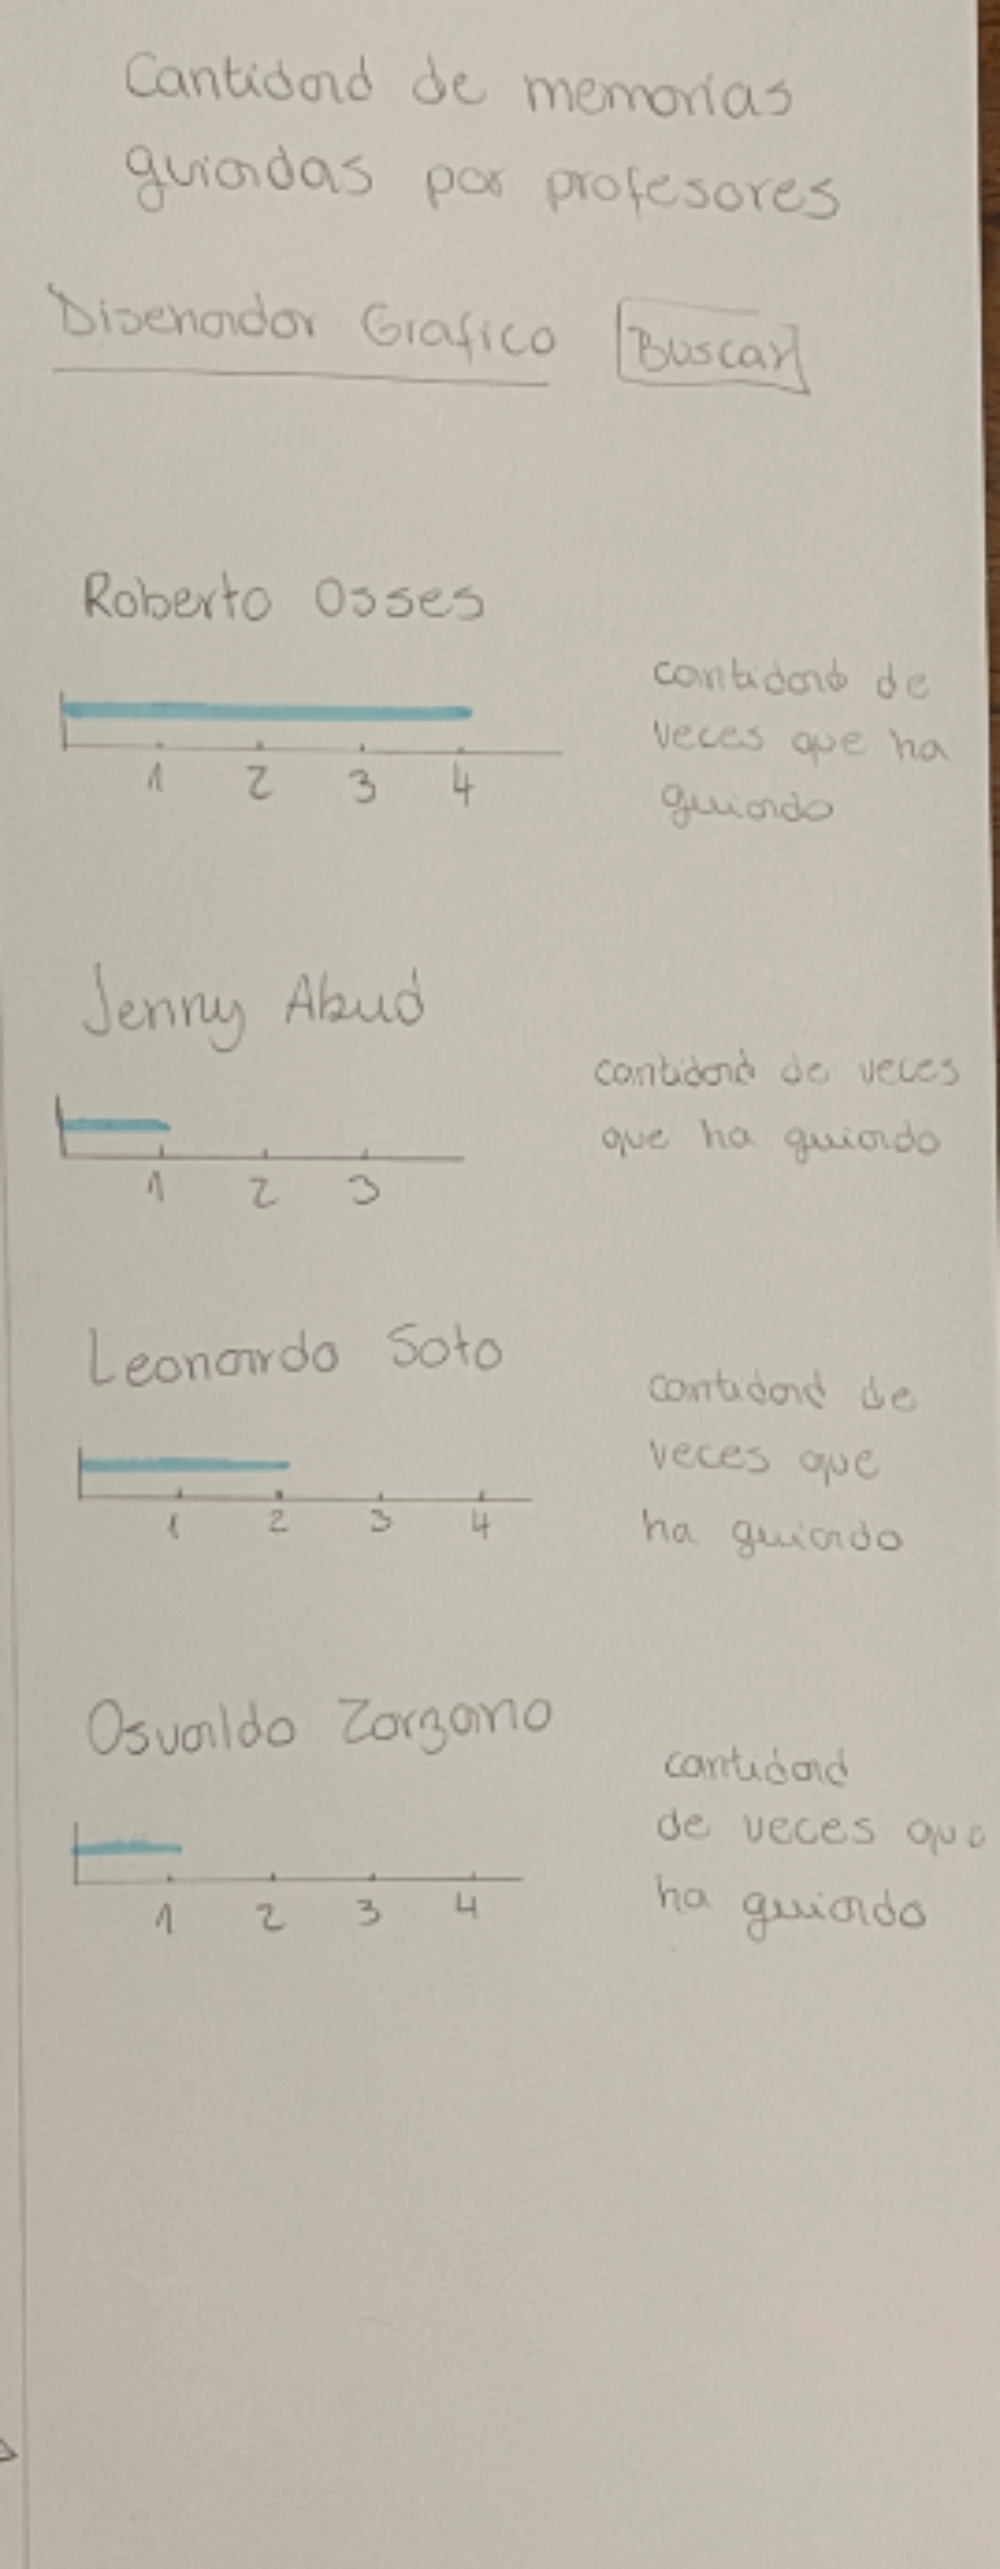 Cantidad de memorias
guiadas por profesores
Disenador Grafico Buscar
Roberto Osses
cantidad de
veces que ha
guiado
1 2 3 4
Jenny Abud
cantidad de veces
que ha guiado
1 2 3
Leonardo Soto
cantidad de
veces que
ha guiado
1 2 3 4
Osvaldo Zorzano
cantidad
de veces que
ha guiado
1 2 3 4